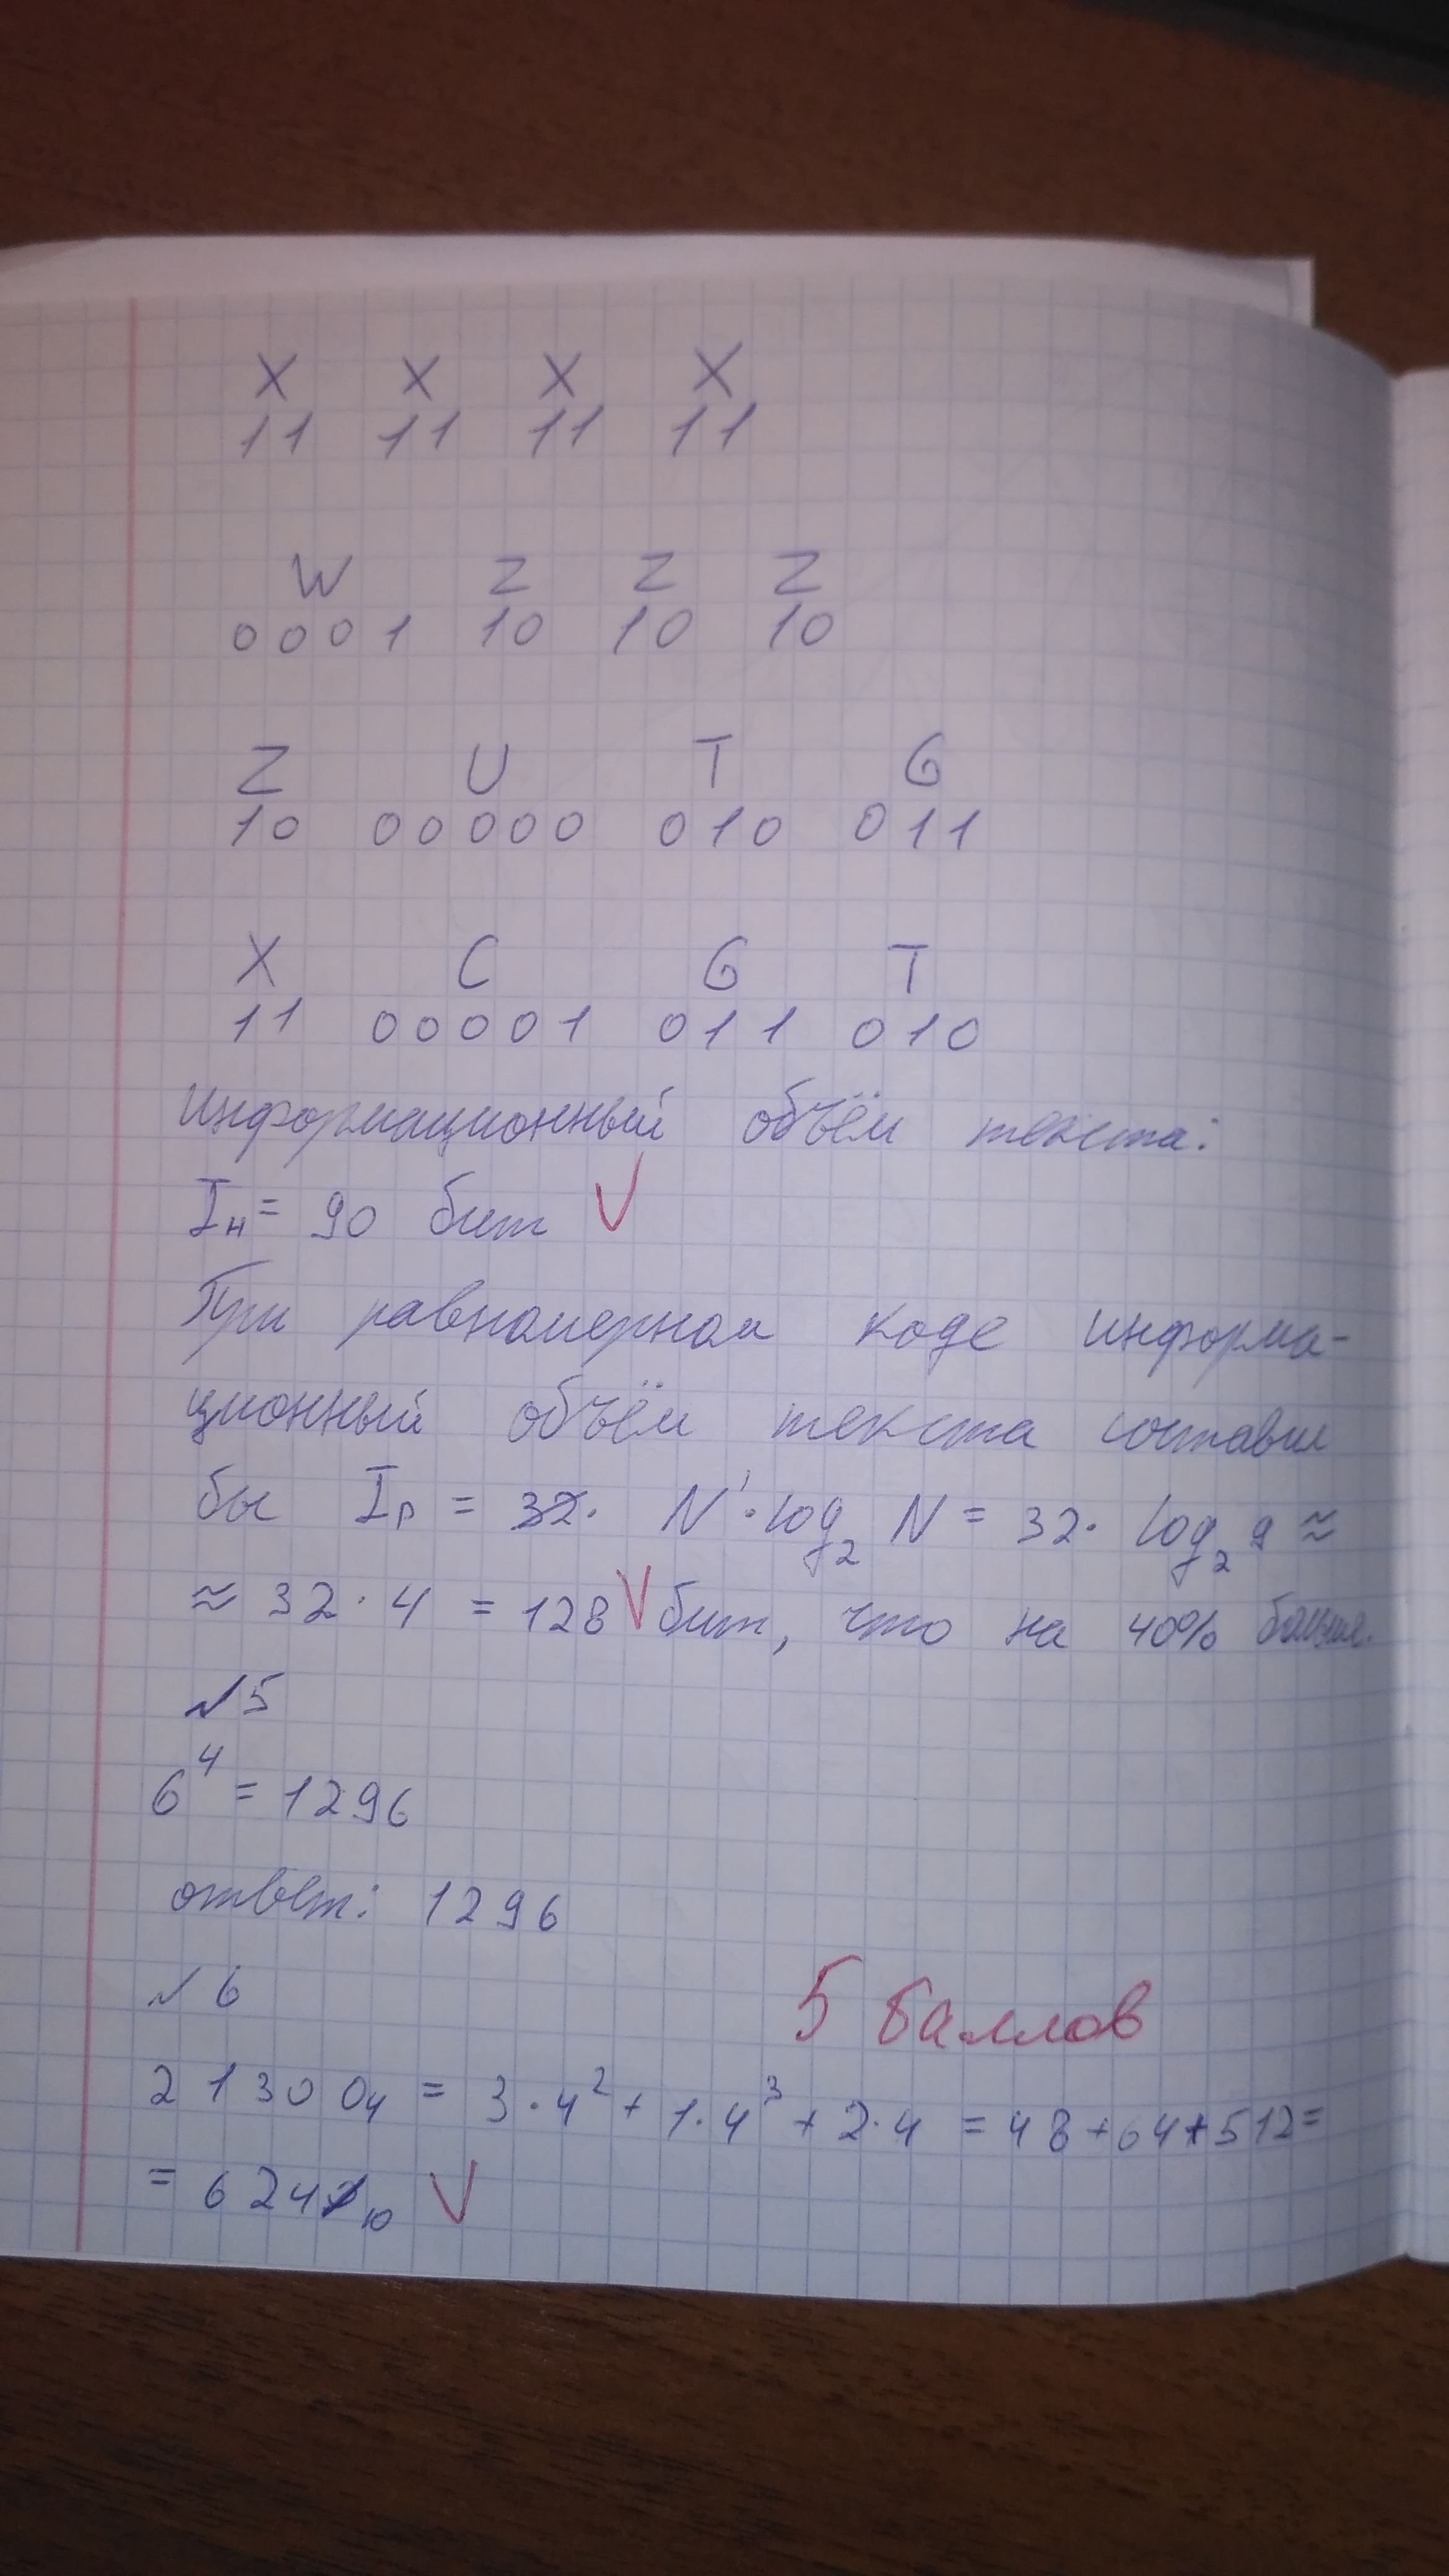 X X X X
11 11 11 11
W Z Z Z
0001 10 10 10
Z U T G
10 00000 010 011
X C G T
11 00001 011 010
Информационный объём текста:
Iн = 90 бит V
При равномерном коде информа-
ционный объём текста составил
бы Iр = 32· N'·log₂ N = 32· log₂ 9 ≈
≈ 32·4 = 128 V бит, что на 40% больше.
№5
6⁴ = 1296
ответ: 1296
№6
5 баллов
21300₄ = 3·4² + 1·4³ + 2·4 = 48+64+512=
= 624₁₀ V